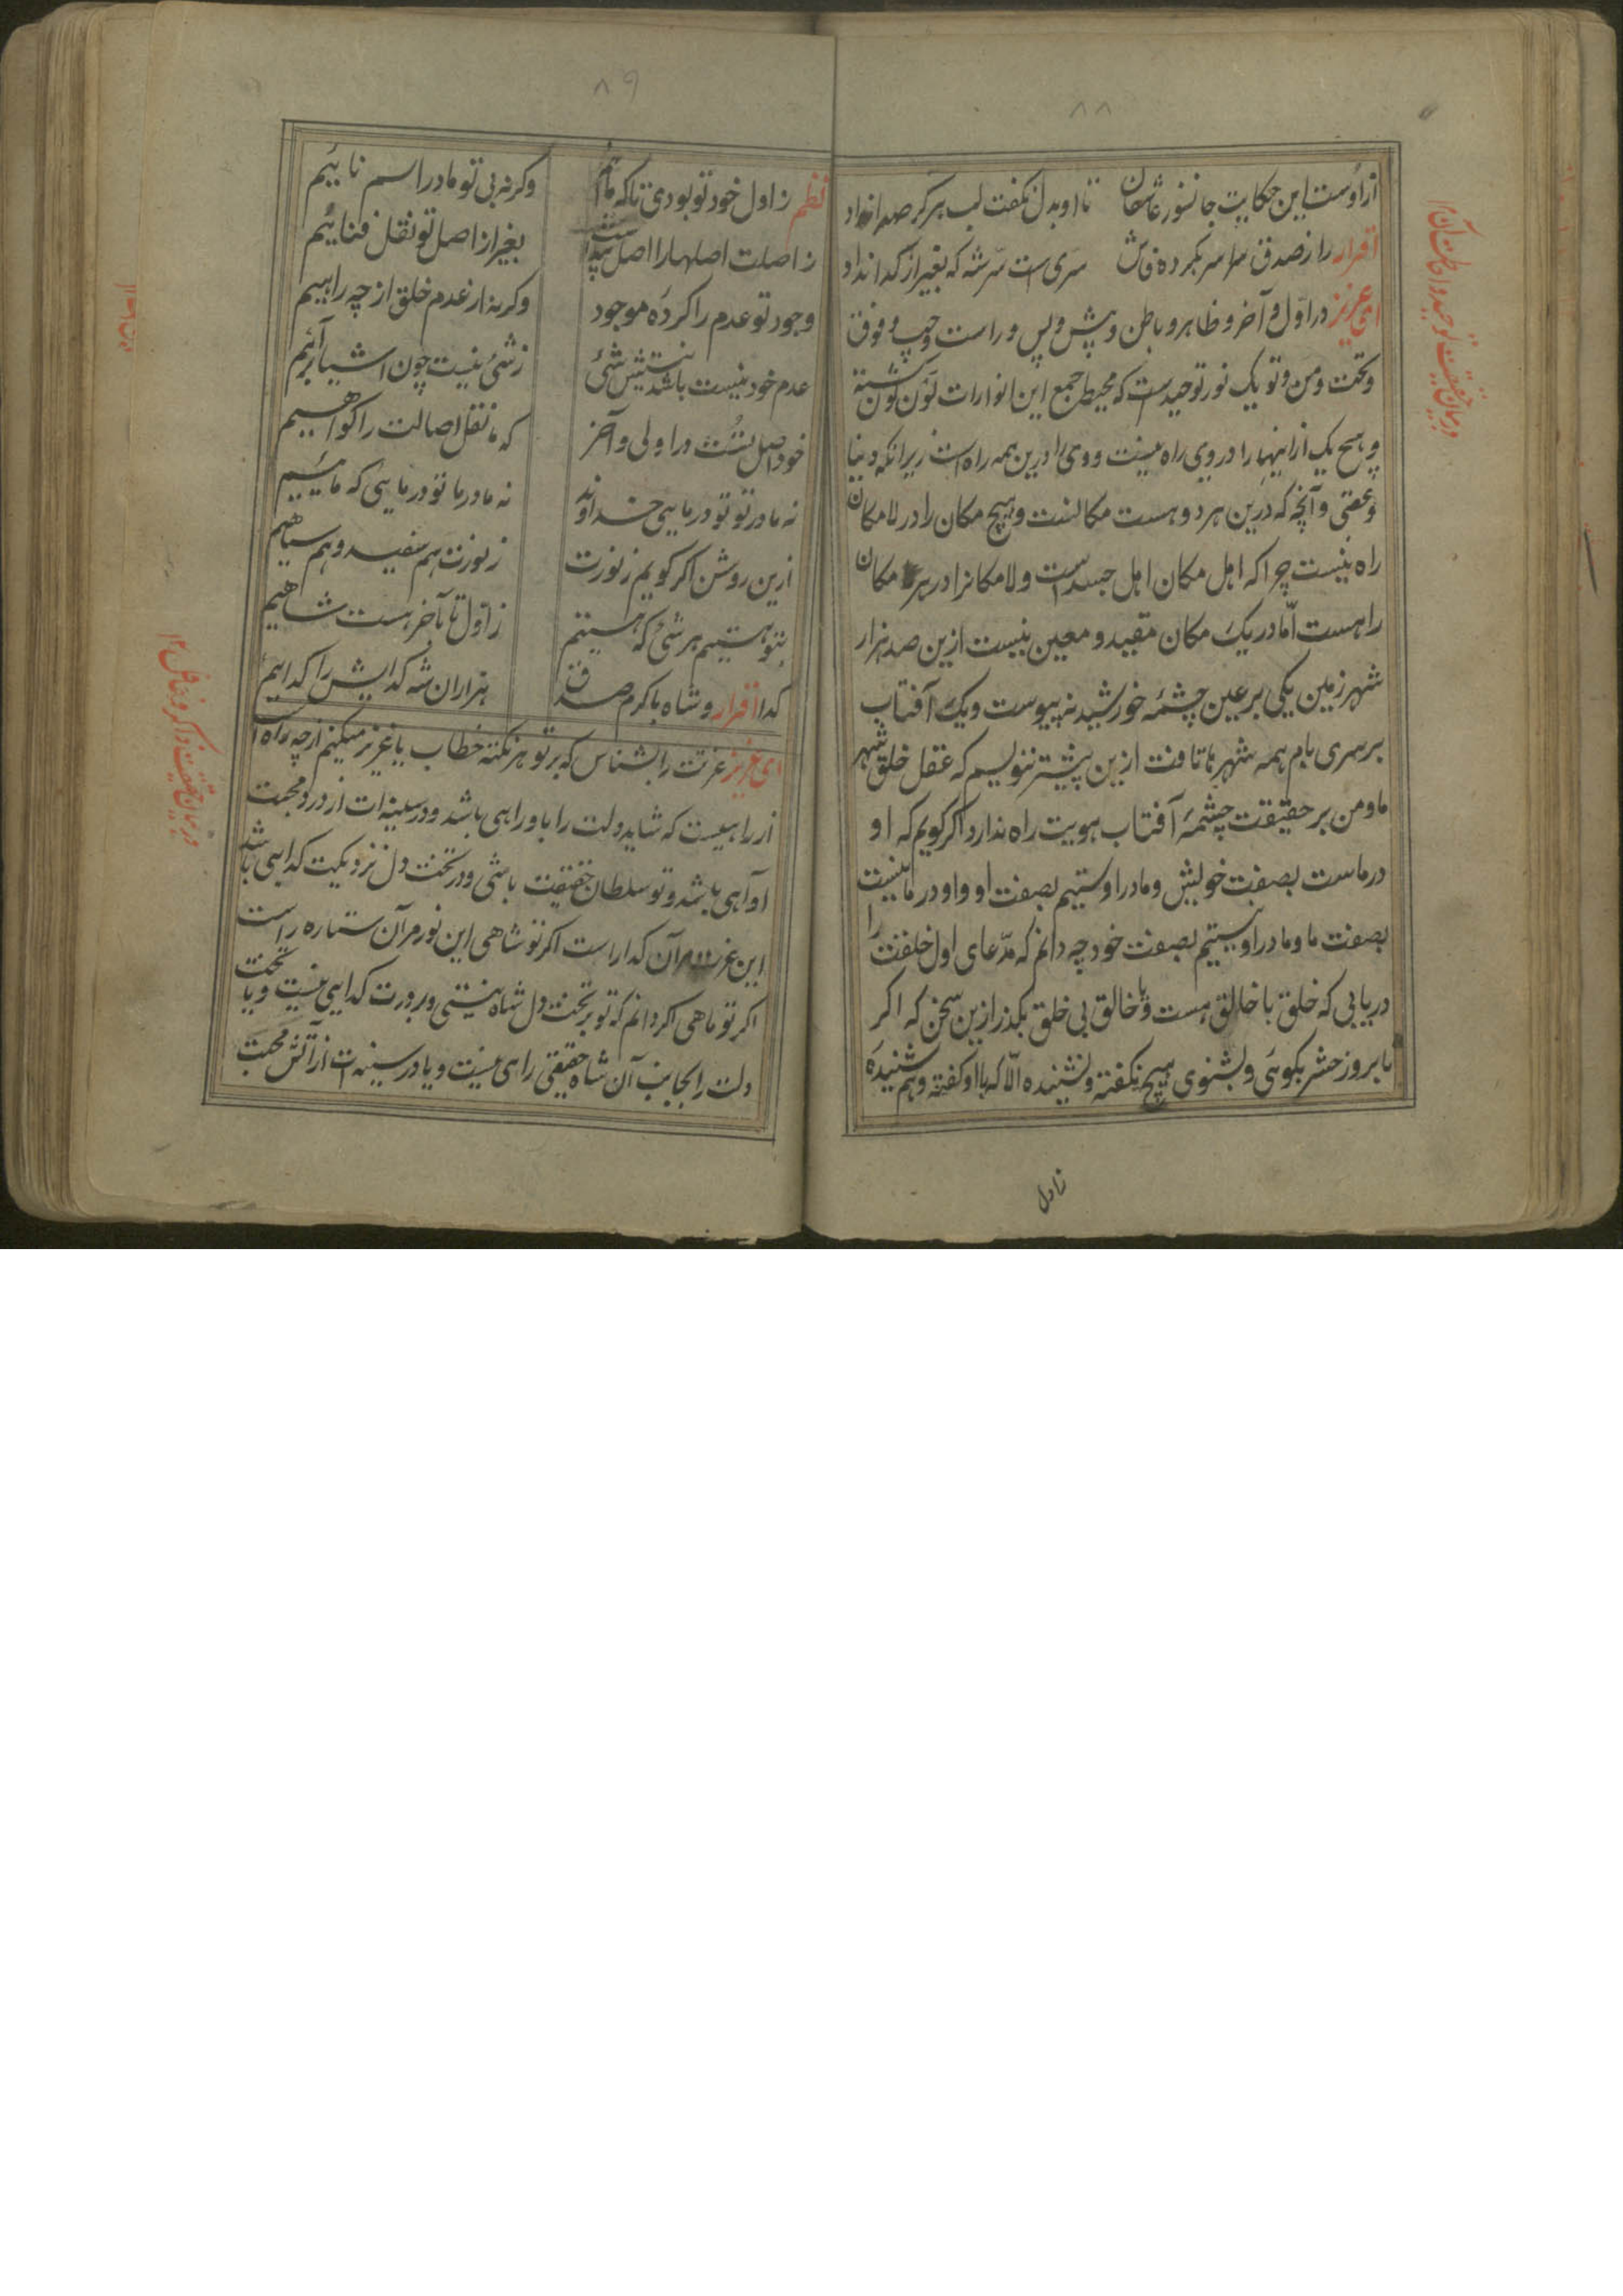 ۸۸
از اوست این حکایت جانسوز عاشقان تا او بدل نگفت لب هرکز صدا نداد
اقرار راز صدق سراسر بکرده فاش سری است سر شه که بغیر از کدا نداد
ای عزیز در اول و آخر و ظاهر و باطن و پیش و پس و راست و چپ و فوق
و تحت و من و تو یک نور توحیدست که محیط جمع این انوارات کون کون کشته
و هیچ یک از اینها را در وی راه نیست و وی را درین همه راه است زیرا که دنیا
و عقبی و آنچه که درین هر دو هست مکانست و هیچ مکان را در لامکان
راه نیست چرا که اهل مکان اهل جسد است و لامکانرا در هر مکان
راهست اما در یک مکان مقید و معین نیست ازین صد هزار
شهر زمین یکی بر عین چشمهٔ خورشید نه پیوست و یک آفتاب
بر سری بام همه شهرها تافت ازین پیشتر ننویسم که عقل خلق شهر
ما و من بر حقیقت چشمهٔ آفتاب هویت راه ندارد اکر کویم که او
در ماست بصفت خویش و ما در اوستیم بصفت او و او در ما نیست
بصفت ما و ما در او نیستیم بصفت خود چه دانم که مدعای اول خلقت را
دریابی که خلق با خالق هست و یا خالق بی خلق بکذر ازین سخن که اکر
تا بروز حشر بکوئی و بشنوی هیچ نکفته و نشنیده الا که با او کفته و هم شنیده
ز اول
در بیان حقیقت توحید و احاطت آن
۸۹
نظم ز اول خود تو بودی تا که مائیم وکرنه بی تو ما در اسم نائیم
ز اصلت اصلها را اصل پیداست بغیر از اصل تو نقل فنائیم
وجود تو عدم را کرده موجود وکرنه از عدم خلق از چه راهیم
عدم خود نیست باشد نیستش شئ ز شئ نیست چون اشیا برآئیم
خود اصل تست در اولی و آخر که ما نقل اصالت را کواهیم
نه ما در تو تو در مایی خداوند نه ما در ما تو در مایی که مائیم
ازین روشن اکر کویم ز نورت ز نورت هم سفید و هم سیاهیم
بتو هستیم هر شئ که هستیم ز اول تا بآخر هست شاهیم
کدا اقرار و شاه با کرم صدق هزاران شه کدایش را کداهیم
ای عزیز عزت را بشناس که بر تو هر نکته خطاب یا عزیز میکنم از چه راه
از راهیست که شاید دلت را باو راهی باشد و در سینه‌ات از درد محبت
او آهی باشد و تو سلطان حقیقت باشی و در تخت دل نزدیکیت کدایی باشد
این عزت مر آن کدا راست اکر تو شاهی این نور مر آن ستاره راست
اکر تو ماهی اکر دانم که تو بر تخت دل شاه نیستی و بر درت کدایی نیست و یا تخت
دلت را بجانب آن شاه حقیقی راهی نیست و یا در سینه‌ات از آتش محبت
در بیان حقیقت ذاکر و غافل